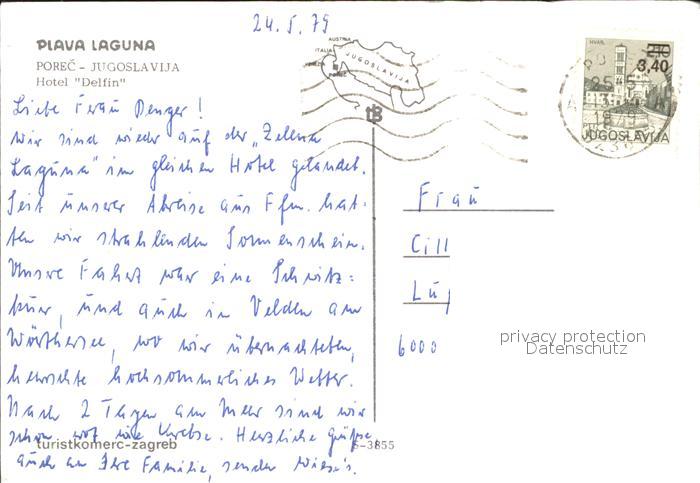 24.5.79
PLAVA LAGUNA
POREČ - JUGOSLAVIJA
Hotel "Delfin"
Liebe Frau Denger!
Wir sind wieder auf der „Zelena
Laguna“ im gleichen Hotel gelandet.
Seit unserer Abreise aus Ffm. hat-
ten wir strahlenden Sonnenschein.
Unsre Fahrt war eine Schwitz-
kur, und auch in Velden am
Wörthersee, wo wir übernachteten,
herrschte hochsommerliches Wetter.
Nach 2 Tagen am Meer sind wir
schon rot wie Krebse. Herzliche Grüße,
auch an Ihre Familie, senden
turistkomerc-zagreb
S-3855
AUSTRIA
ITALIA
JUGOSLAVIJA
POREČ
HVAR
2,10
3,40
JUGOSLAVIJA
Frau
Cill
6000
privacy protection
Datenschutz